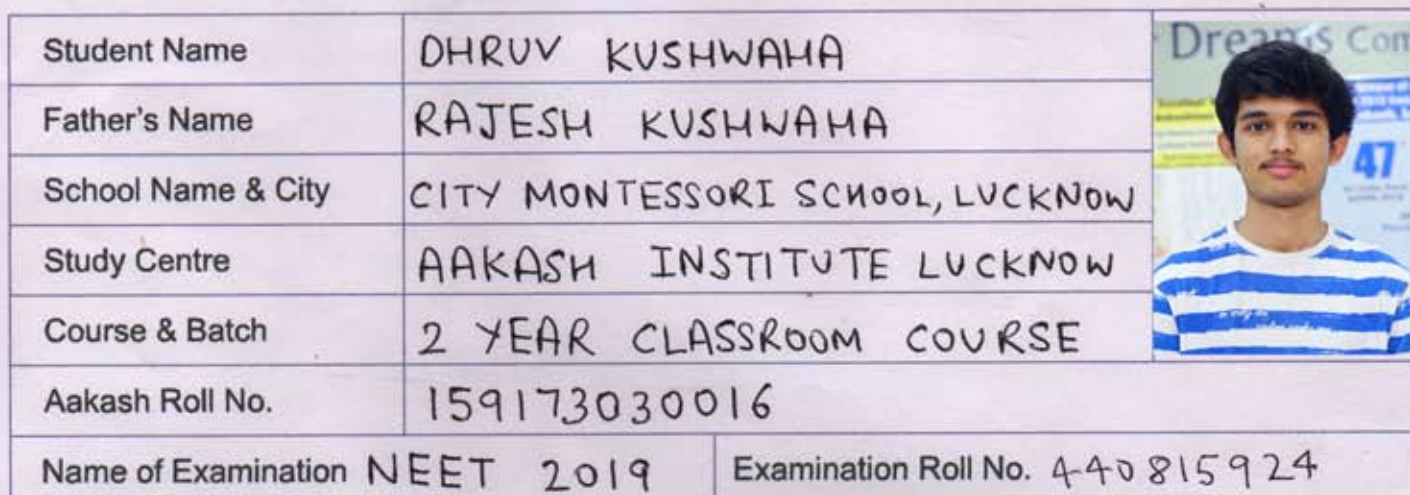 Student Name DHRUV KUSHWAHA
Father's Name RAJESH KUSHWAHA
School Name & City CITY MONTESSORI SCHOOL, LUCKNOW
Study Centre AAKASH INSTITUTE LUCKNOW
Course & Batch 2 YEAR CLASSROOM COURSE
Aakash Roll No. 159173030016
Name of Examination NEET 2019 Examination Roll No. 440815924
Dreams Com
47